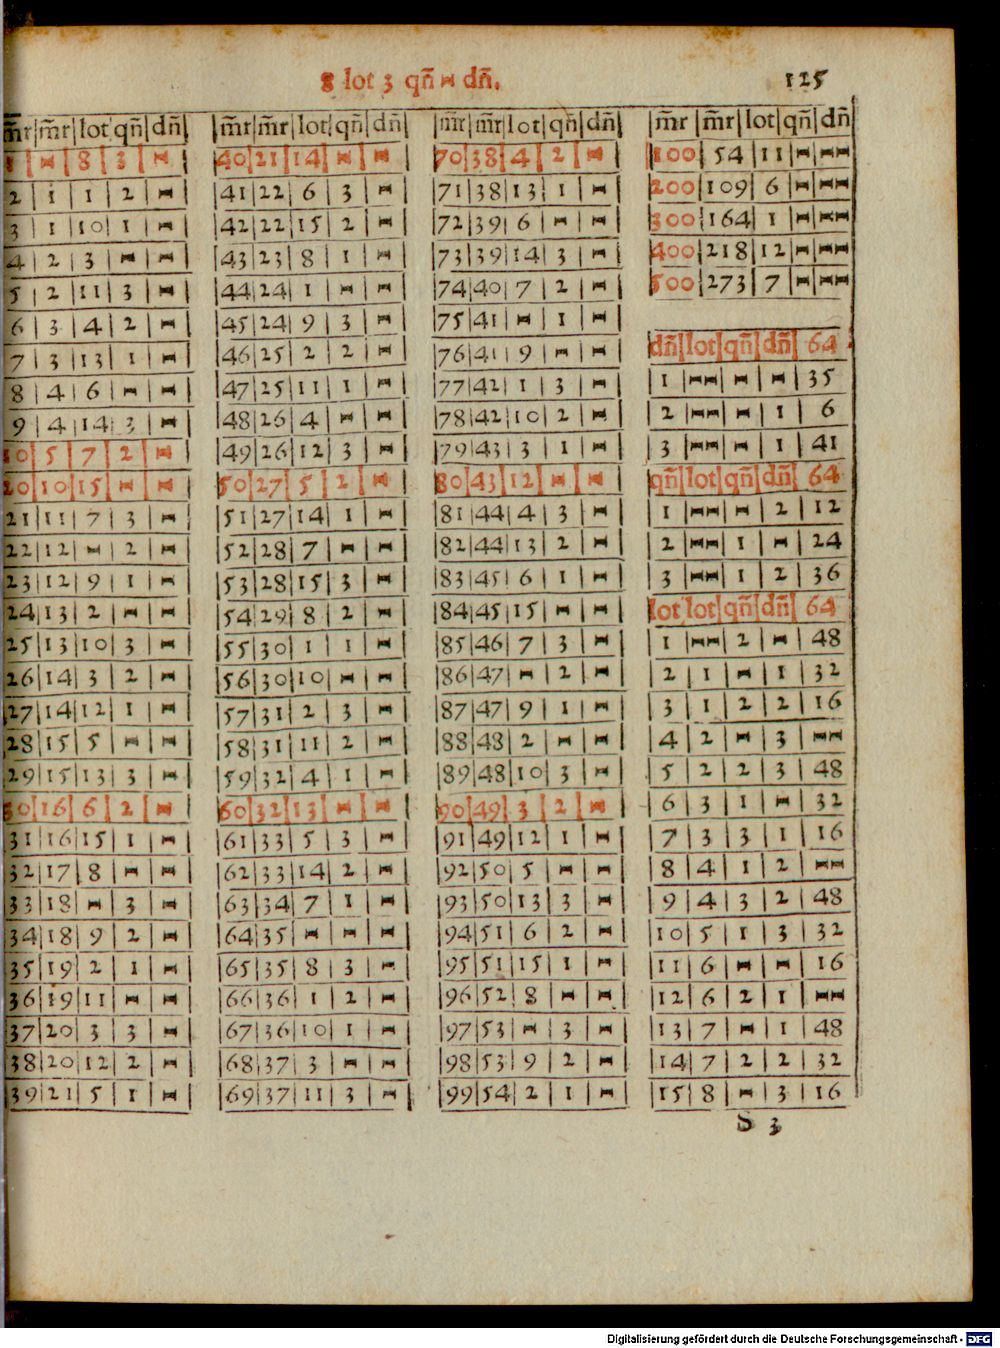 8 lot 3 qñ - dñ.
125
m̃r m̃r lot qñ dñ
1 - 8 3 -
2 1 1 2 -
3 1 10 1 -
4 2 3 - -
5 2 11 3 -
6 3 4 2 -
7 3 13 1 -
8 4 6 - -
9 4 14 3 -
10 5 7 2 -
20 10 15 - -
21 11 7 3 -
22 12 - 2 -
23 12 9 1 -
24 13 2 - -
25 13 10 3 -
26 14 3 2 -
27 14 12 1 -
28 15 5 - -
29 15 13 3 -
30 16 6 2 -
31 16 15 1 -
32 17 8 - -
33 18 - 3 -
34 18 9 2 -
35 19 2 1 -
36 19 11 - -
37 20 3 3 -
38 20 12 2 -
39 21 5 1 -
m̃r m̃r lot qñ dñ
40 21 14 - -
41 22 6 3 -
42 22 15 2 -
43 23 8 1 -
44 24 1 - -
45 24 9 3 -
46 25 2 2 -
47 25 11 1 -
48 26 4 - -
49 26 12 3 -
50 27 5 2 -
51 27 14 1 -
52 28 7 - -
53 28 15 3 -
54 29 8 2 -
55 30 1 1 -
56 30 10 - -
57 31 2 3 -
58 31 11 2 -
59 32 4 1 -
60 32 13 - -
61 33 5 3 -
62 33 14 2 -
63 34 7 1 -
64 35 - - -
65 35 8 3 -
66 36 1 2 -
67 36 10 1 -
68 37 3 - -
69 37 11 3 -
m̃r m̃r lot qñ dñ
70 38 4 2 -
71 38 13 1 -
72 39 6 - -
73 39 14 3 -
74 40 7 2 -
75 41 - 1 -
76 41 9 - -
77 42 1 3 -
78 42 10 2 -
79 43 3 1 -
80 43 12 - -
81 44 4 3 -
82 44 13 2 -
83 45 6 1 -
84 45 15 - -
85 46 7 3 -
86 47 - 2 -
87 47 9 1 -
88 48 2 - -
89 48 10 3 -
90 49 3 2 -
91 49 12 1 -
92 50 5 - -
93 50 13 3 -
94 51 6 2 -
95 51 15 1 -
96 52 8 - -
97 53 - 3 -
98 53 9 2 -
99 54 2 1 -
m̃r m̃r lot qñ dñ
100 54 11 - --
200 109 6 - --
300 164 1 - --
400 218 12 - --
500 273 7 - --
dñ lot qñ dñ 64
1 -- - - 35
2 -- - 1 6
3 -- - 1 41
qñ lot qñ dñ 64
1 -- - 2 12
2 -- 1 - 24
3 -- 1 2 36
lot lot qñ dñ 64
1 -- 2 - 48
2 1 - 1 32
3 1 2 2 16
4 2 - 3 --
5 2 2 3 48
6 3 1 - 32
7 3 3 1 16
8 4 1 2 --
9 4 3 2 48
10 5 1 3 32
11 6 - - 16
12 6 2 1 --
13 7 - 1 48
14 7 2 2 32
15 8 - 3 16
S 3
Digitalisierung gefördert durch die Deutsche Forschungsgemeinschaft - DFG